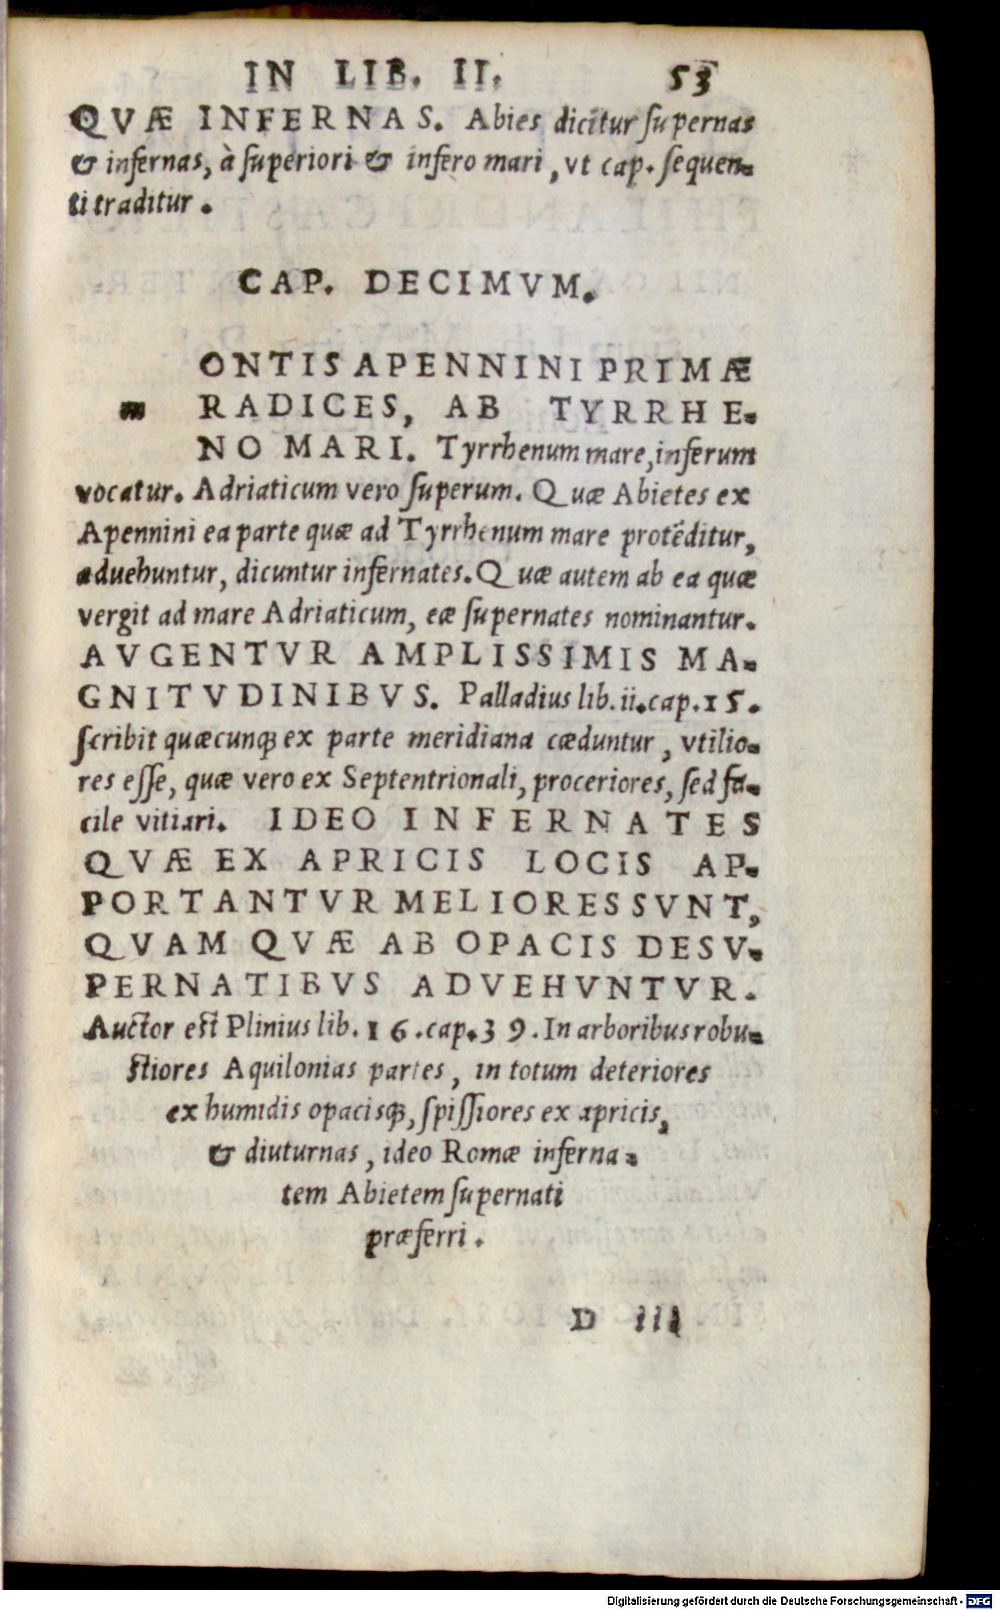 IN LIB. II. 53
QVÆ INFERNAS. Abies dicitur supernas
& infernas, à superiori & infero mari, vt cap. sequen-
ti traditur.
CAP. DECIMVM.
ONTIS APENNINI PRIMÆ
m RADICES, AB TYRRHE-
NO MARI. Tyrrhenum mare, inferum
vocatur. Adriaticum vero superum. Quæ Abietes ex
Apennini ea parte quæ ad Tyrrhenum mare protẽditur,
aduehuntur, dicuntur infernates. Quæ autem ab ea quæ
vergit ad mare Adriaticum, eæ supernates nominantur.
AVGENTVR AMPLISSIMIS MA-
GNITVDINIBVS. Palladius lib. ii. cap. 15.
scribit quæcunqꝫ ex parte meridiana cæduntur, vtilio-
res esse, quæ vero ex Septentrionali, proceriores, sed fa-
cile vitiari. IDEO INFERNATES
QVÆ EX APRICIS LOCIS AP-
PORTANTVR MELIORES SVNT,
QVAM QVÆ AB OPACIS DESV-
PERNATIBVS ADVEHVNTVR.
Auctor est Plinius lib. 16. cap. 39. In arboribus robu-
stiores Aquilonias partes, in totum deteriores
ex humidis opacisqꝫ, spissiores ex apricis,
& diuturnas, ideo Romæ inferna-
tem Abietem supernati
præferri.
D iii
Digitalisierung gefördert durch die Deutsche Forschungsgemeinschaft - DFG